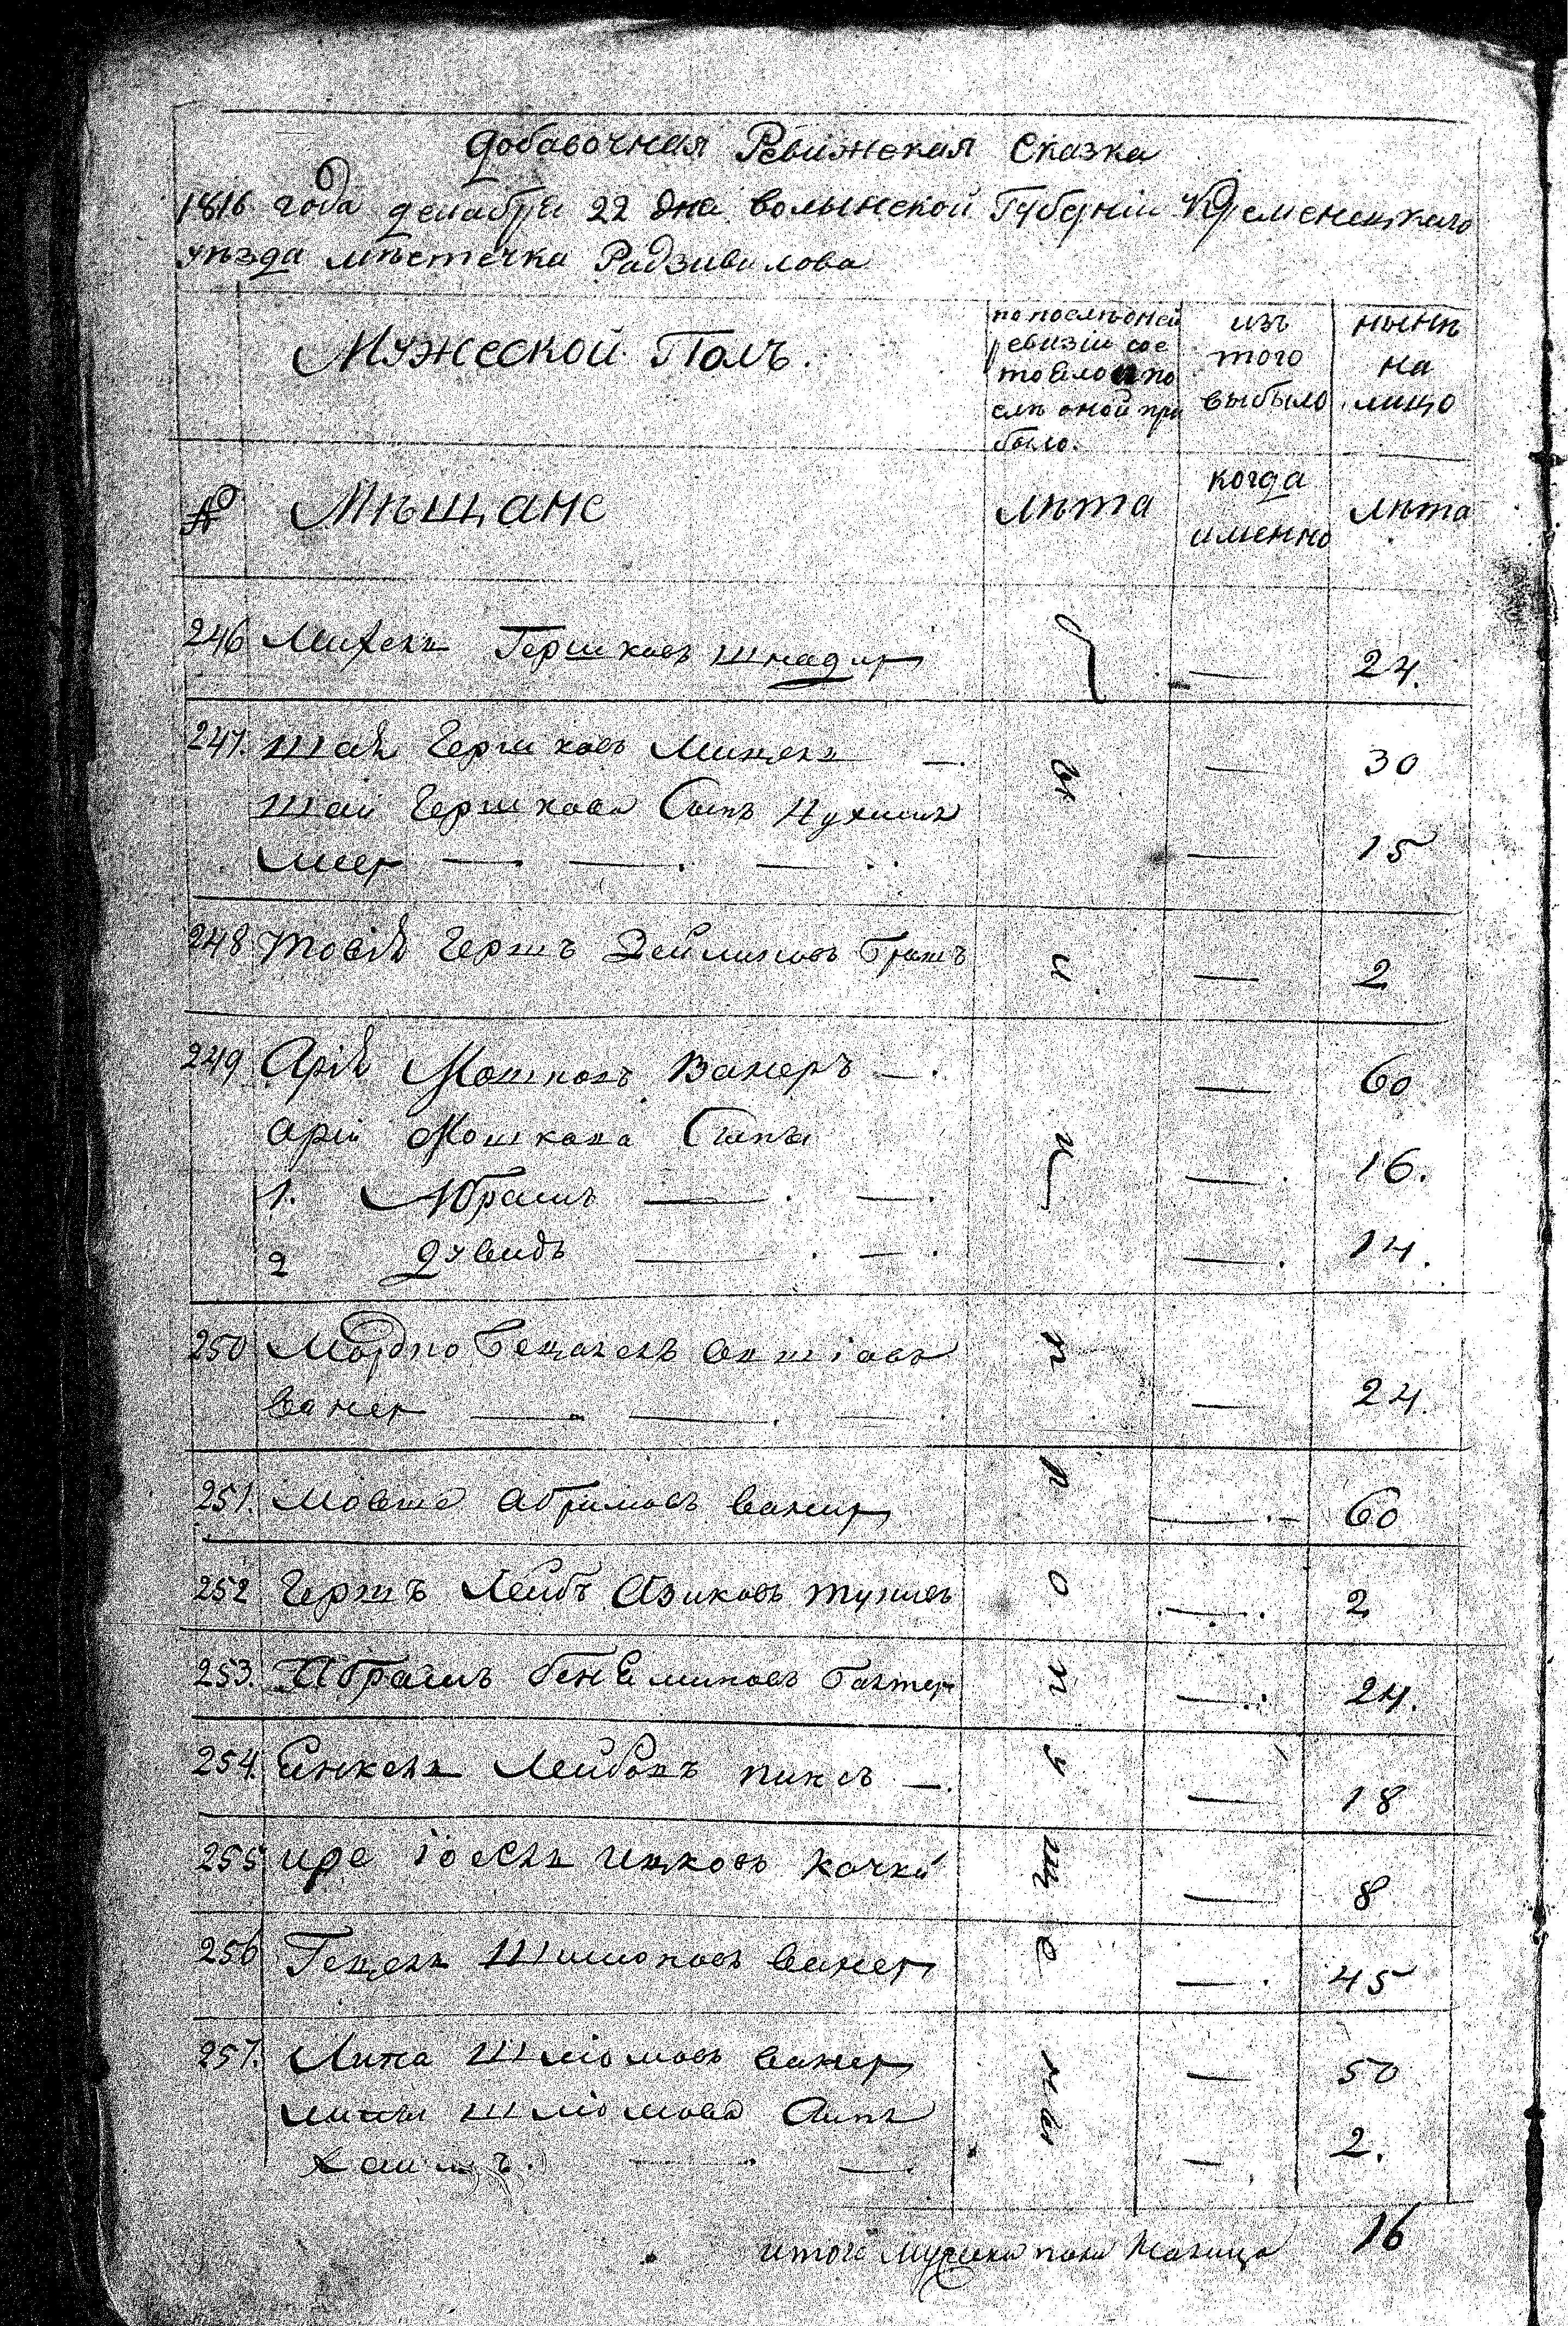 Добавочная Ревижская Сказка
1816 года декабря 22 дня волынской Губерніи Кременецкаго
уѣзда мѣстечка Радзивилова
Мужеской Полъ.
по послѣдней
ревизіи сос
тояло и по
слѣ оной при
было.
изъ
того
выбыло
нынѣ
на
лицо
№ Мѣщане лѣта
когда
именно
лѣта
246 Михель Гершковъ шнадир — 24.
247. Шай Гершковъ —. — 30
Шаи Гершкова Сынъ
Меер — . — . — — 15
248 Товій Гершъ — 2
249 Арій Мошковъ Ванеръ —. — 60
Арія Мошкова Сыны
1. Абрамъ — . — . — 16.
2 Дувидъ — . — . — 14.
250 Мордко
Ванер — . — . — . — 24.
251. Мовша Абрамовъ Ванер — 60
252 Гершъ Лейбъ Айзиковъ — 2
253. Абрамъ Бенеминовъ — 24.
254. Еинкель Лейбовъ пинсъ —. — 18
255 Ицковъ Качка — 8
256 Гецель Шимоновъ Ванер — 45
257. Шліомовъ Ванер — 50
Шліомова Сынъ
Хаимъ. — . — . — 2.
ы и и п р о п у щ е н ы
итого мужеска пола налицо 16